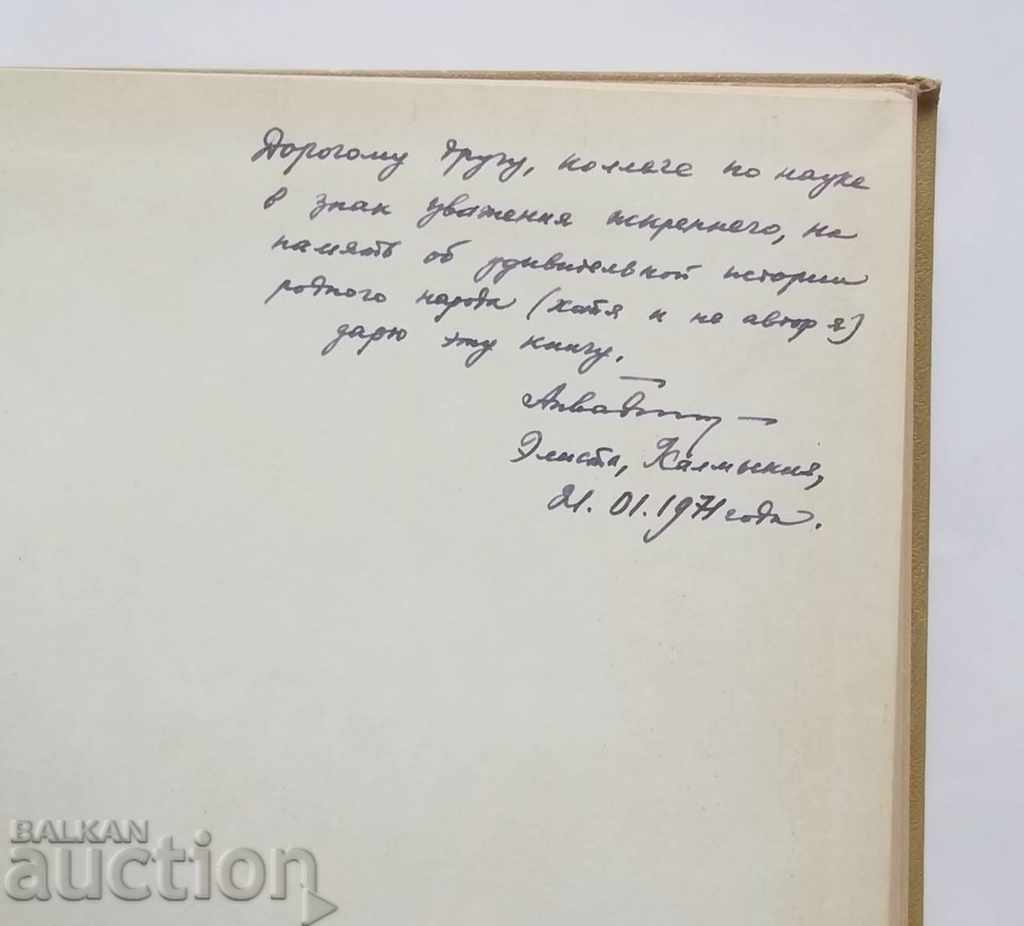 Дорогому другу, коллеге по науке
в знак уважения искреннего, на
память об удивительной истории
родного народа (хотя и не автор я)
дарю эту книгу.
Элиста, Калмыкия,
21. 01. 1971 года.
BALKAN
auction